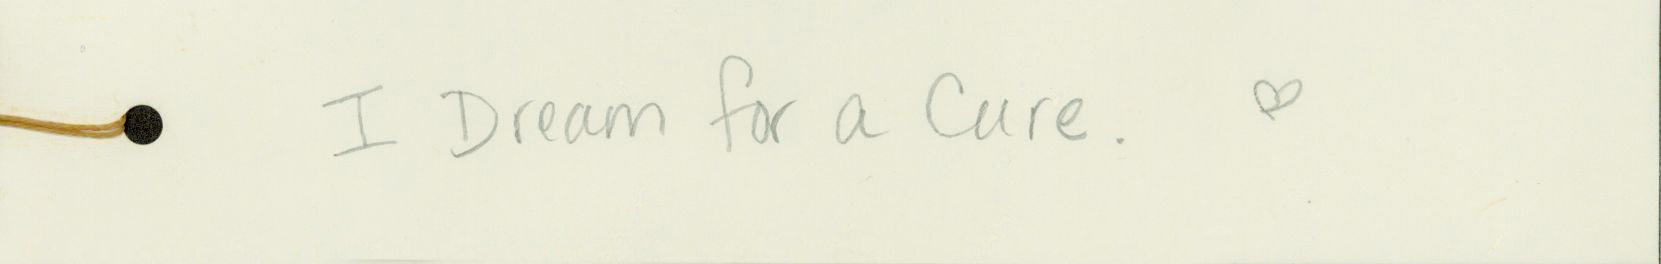 I Dream for a Cure. ♡